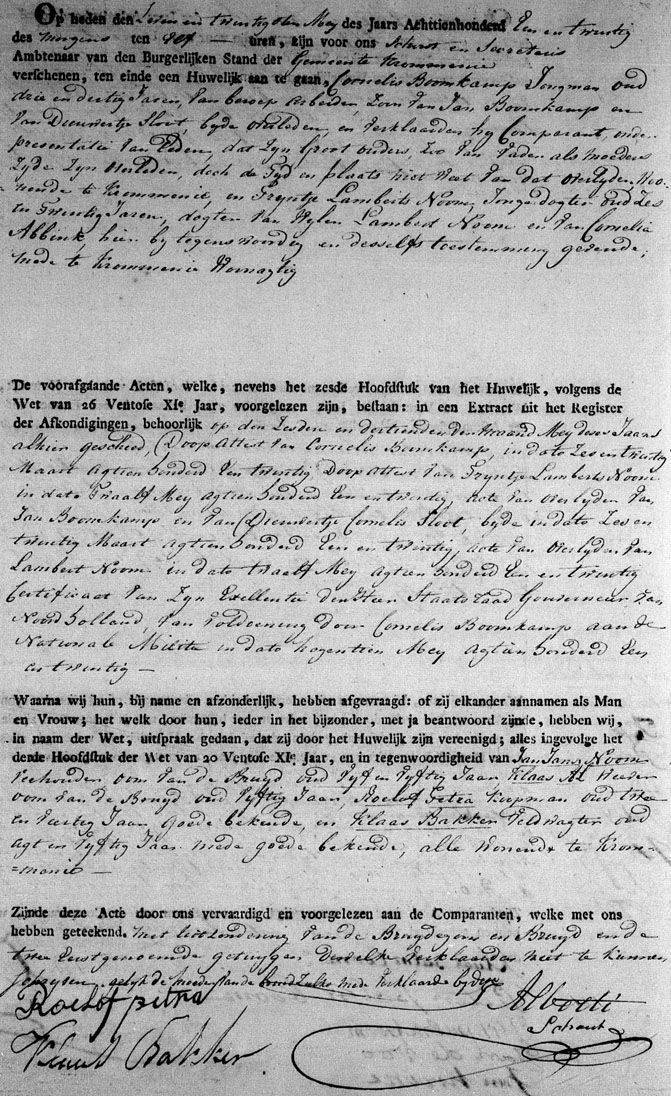 Op heden den Seven en twintigsten Mey des Jaars Achttienhonderd Een en twintig
des morgens ten elf uren, zijn voor ons Schout en Secretaris
Ambtenaar van den Burgerlijken Stand der Gemeente Krommenie
verschenen, ten einde een Huwelijk aan te gaan, Cornelis Boomkamp Jongman oud
drie en dertig Jaren, van beroep Arbeider, Zoon van Jan Boomkamp en
van Dieuwertje Sloot, byde overleden, en verklaarden hy Comparant onder
presentatie van Eeden, dat Zyn Groot ouders Zoo van Vaders als moeders
Zyde Zyn overleden, doch de Tyd en plaats niet Weet van dat overlyden, Woo-
nende te Krommenie, en Tryntje Lamberts Noom, Jonge dogter oud Zes
en Twintig Jaren, dogter van Wylen Lambert Noom en van Cornelia
Abbink, hier by tegenswoordig en desselfs toestemming gevende,
mede te Krommenie Woonagtig
De voorafgaande Acten, welke, nevens het zesde Hoofdstuk van het Huwelijk, volgens de
Wet van 26 Ventose XIe Jaar, voorgelezen zijn, bestaan: in een Extract uit het Register
der Afkondigingen, behoorlijk op den Zesden en dertienden der maand Mey deses Jaars
alhier geschied, Doop Attest van Cornelis Boomkamp, in dato Zes en twintig
Maart agtienhonderd Een en twintig, Doop Attest van Tryntje Lamberts Noom
in dato Twaalf Mey agtienhonderd Een en twintig, acte van overlyden van
Jan Boomkamp en van Dieuwertje Cornelis Sloot, byde in dato Zes en
twintig Maart agtienhonderd Een en twintig, acte van overlyden van
Lambert Noom in dato twaalf Mey agtienhonderd Een en twintig
Certificaat van Zyn Excellentie den Heer Staatsraad Gouverneur van
Noord holland, van voldoening door Cornelis Boomkamp aan de
Nationale Militie in dato Negentien Mey agtienhonderd Een
en twintig —
Waarna wij hun, bij name en afzonderlijk, hebben afgevraagd: of zij elkander aannamen als Man
en Vrouw; het welk door hun, ieder in het bijzonder, met ja beantwoord zijnde, hebben wij,
in naam der Wet, uitspraak gedaan, dat zij door het Huwelijk zijn vereenigd; alles ingevolge het
derde Hoofdstuk der Wet van 20 Ventose XIe Jaar, en in tegenwoordigheid van Jan Jansz Noom
Veehouder oom van de Bruyd oud Vyf en Vyftig Jaar, Klaas Al
oom van de Bruyd oud Vyftig Jaar, Roelof Petra Koopman oud twee
en Veertig Jaar goede bekende, en Klaas Bakker Veldwagter oud
agt en Vyftig Jaar mede goede bekende, alle Wonende te Krom-
=menie —
Zijnde deze Acte door ons vervaardigd en voorgelezen aan de Comparanten, welke met ons
hebben geteekend. met uitzondering van de Bruydegom en Bruyd en de
twee Eerstgenoemde getuygen Dewelke Verklaarden niet te kunnen
schryven, gelyk de moeder mede Verklaarde
Roelof petra Alberti
Schout
Klaas Bakker